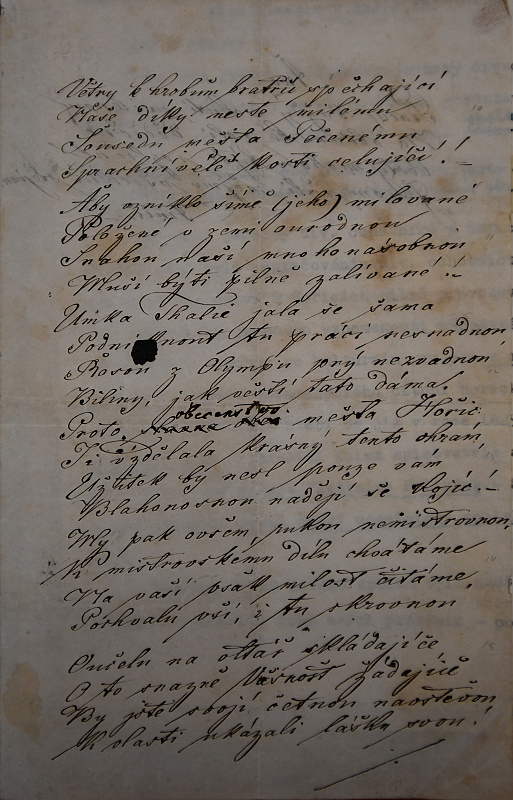 Větry k hrobům bratrů spěchající
Naše díky neste milému
Sousedu města Pečenému
Sprachnivělé kosti celujíčí!!
Aby vzniklo símě (jeho) milované
Položené v zemi ourodnou
Snahou naší mnohonásobnou
Musí býti pilně zalívané!!
Umka Thalie jala se sama
tu práci nesnadnou
Rosou z Olympu prý nezvadnou
Biliny, jak věstí tato dáma.
Proto, obecenstvo města Hořic
Ti vzdělala krásný tento chrám,
Užitek by nesl pouze vám
Blahonosnou nadějí se kojíc!
My pak ovšem, rukou nemistrovnou,
K mistrovskému dílu chvátáme
Na vaší však milost čítáme,
Pochvalu vší, i tu skrovnou
Oučelu na oltář skládajíčé
O to snazně Vašnost žádajíčé
By jste svojí četnou naostěvou
K vlasti ukázali lásku svou!